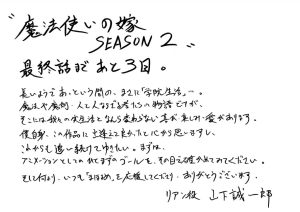 “魔法使いの嫁
SEASON 2”
最終話まで あと3日。
長いようであっという間の、まさに「学院生活」…。
魔法や魔術、人と人ならざる者たちの物語ですが、
そこには我々の実生活となんら変わらない喜や楽しみや愛があります。
僕自身、この作品に出逢えて良かったと心から思いますし、
これからも追い続けてゆきたい。まずは、
アニメーションとしてのひとまずのゴールを、その目で確かめてみてください。
そして何より、いつも「まほよめ」を応援してくださり、ありがとうございます。
リアン役 山下誠一郎